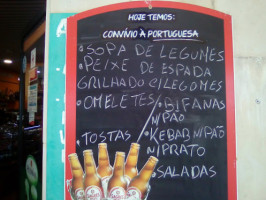 HOJE TEMOS:
CONVÍVIO À PORTUGUESA
•SOPA DE LEGUMES
•PEIXE DE ESPADA
GRILHADO C/LEGOMES
•OMELETES
•BIFANAS
N/PÃO
•TOSTAS
•KEBAB N/PÃO
N/PRATO
•SALADAS